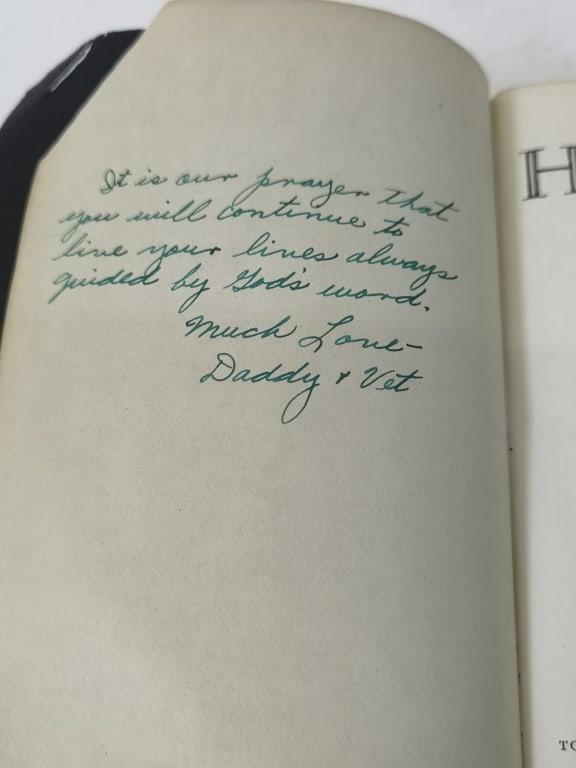 It is our prayer that
you will continue to
live your lives always
guided by God's word.
Much Love-
Daddy & Vet
H
TO